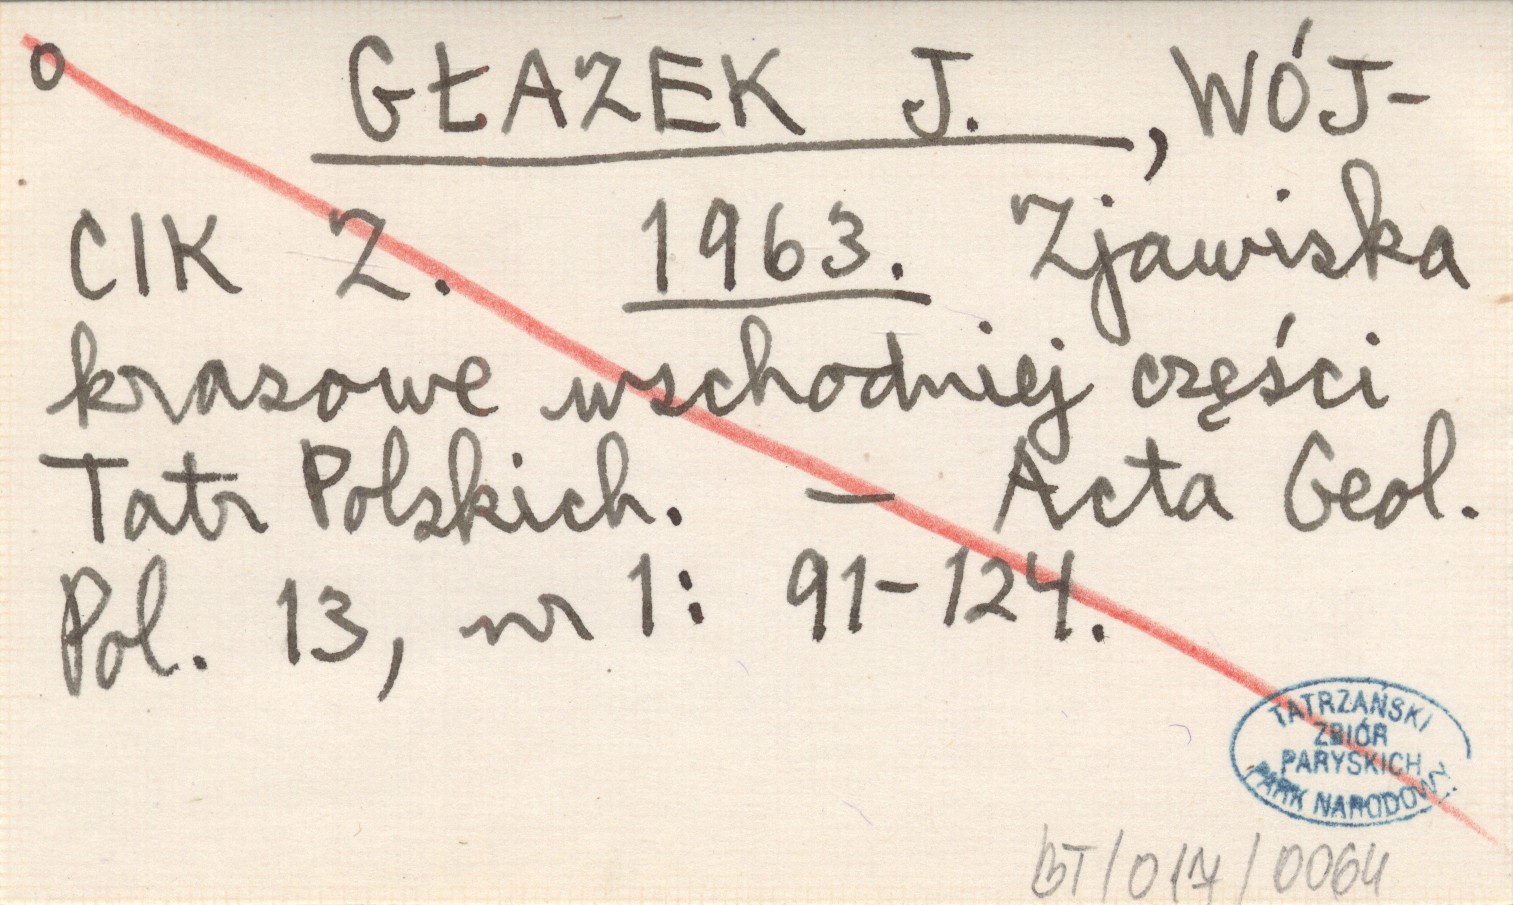 o GŁAZEK J., WÓJ-
CIK Z. 1963. Zjawiska
krasowe wschodniej części
Tatr Polskich. — Acta Geol.
Pol. 13, nr 1: 91-124.
TATRZAŃSKI
ZBIÓR
PARYSKICH
PARK NARODOWY
BT/017/0064